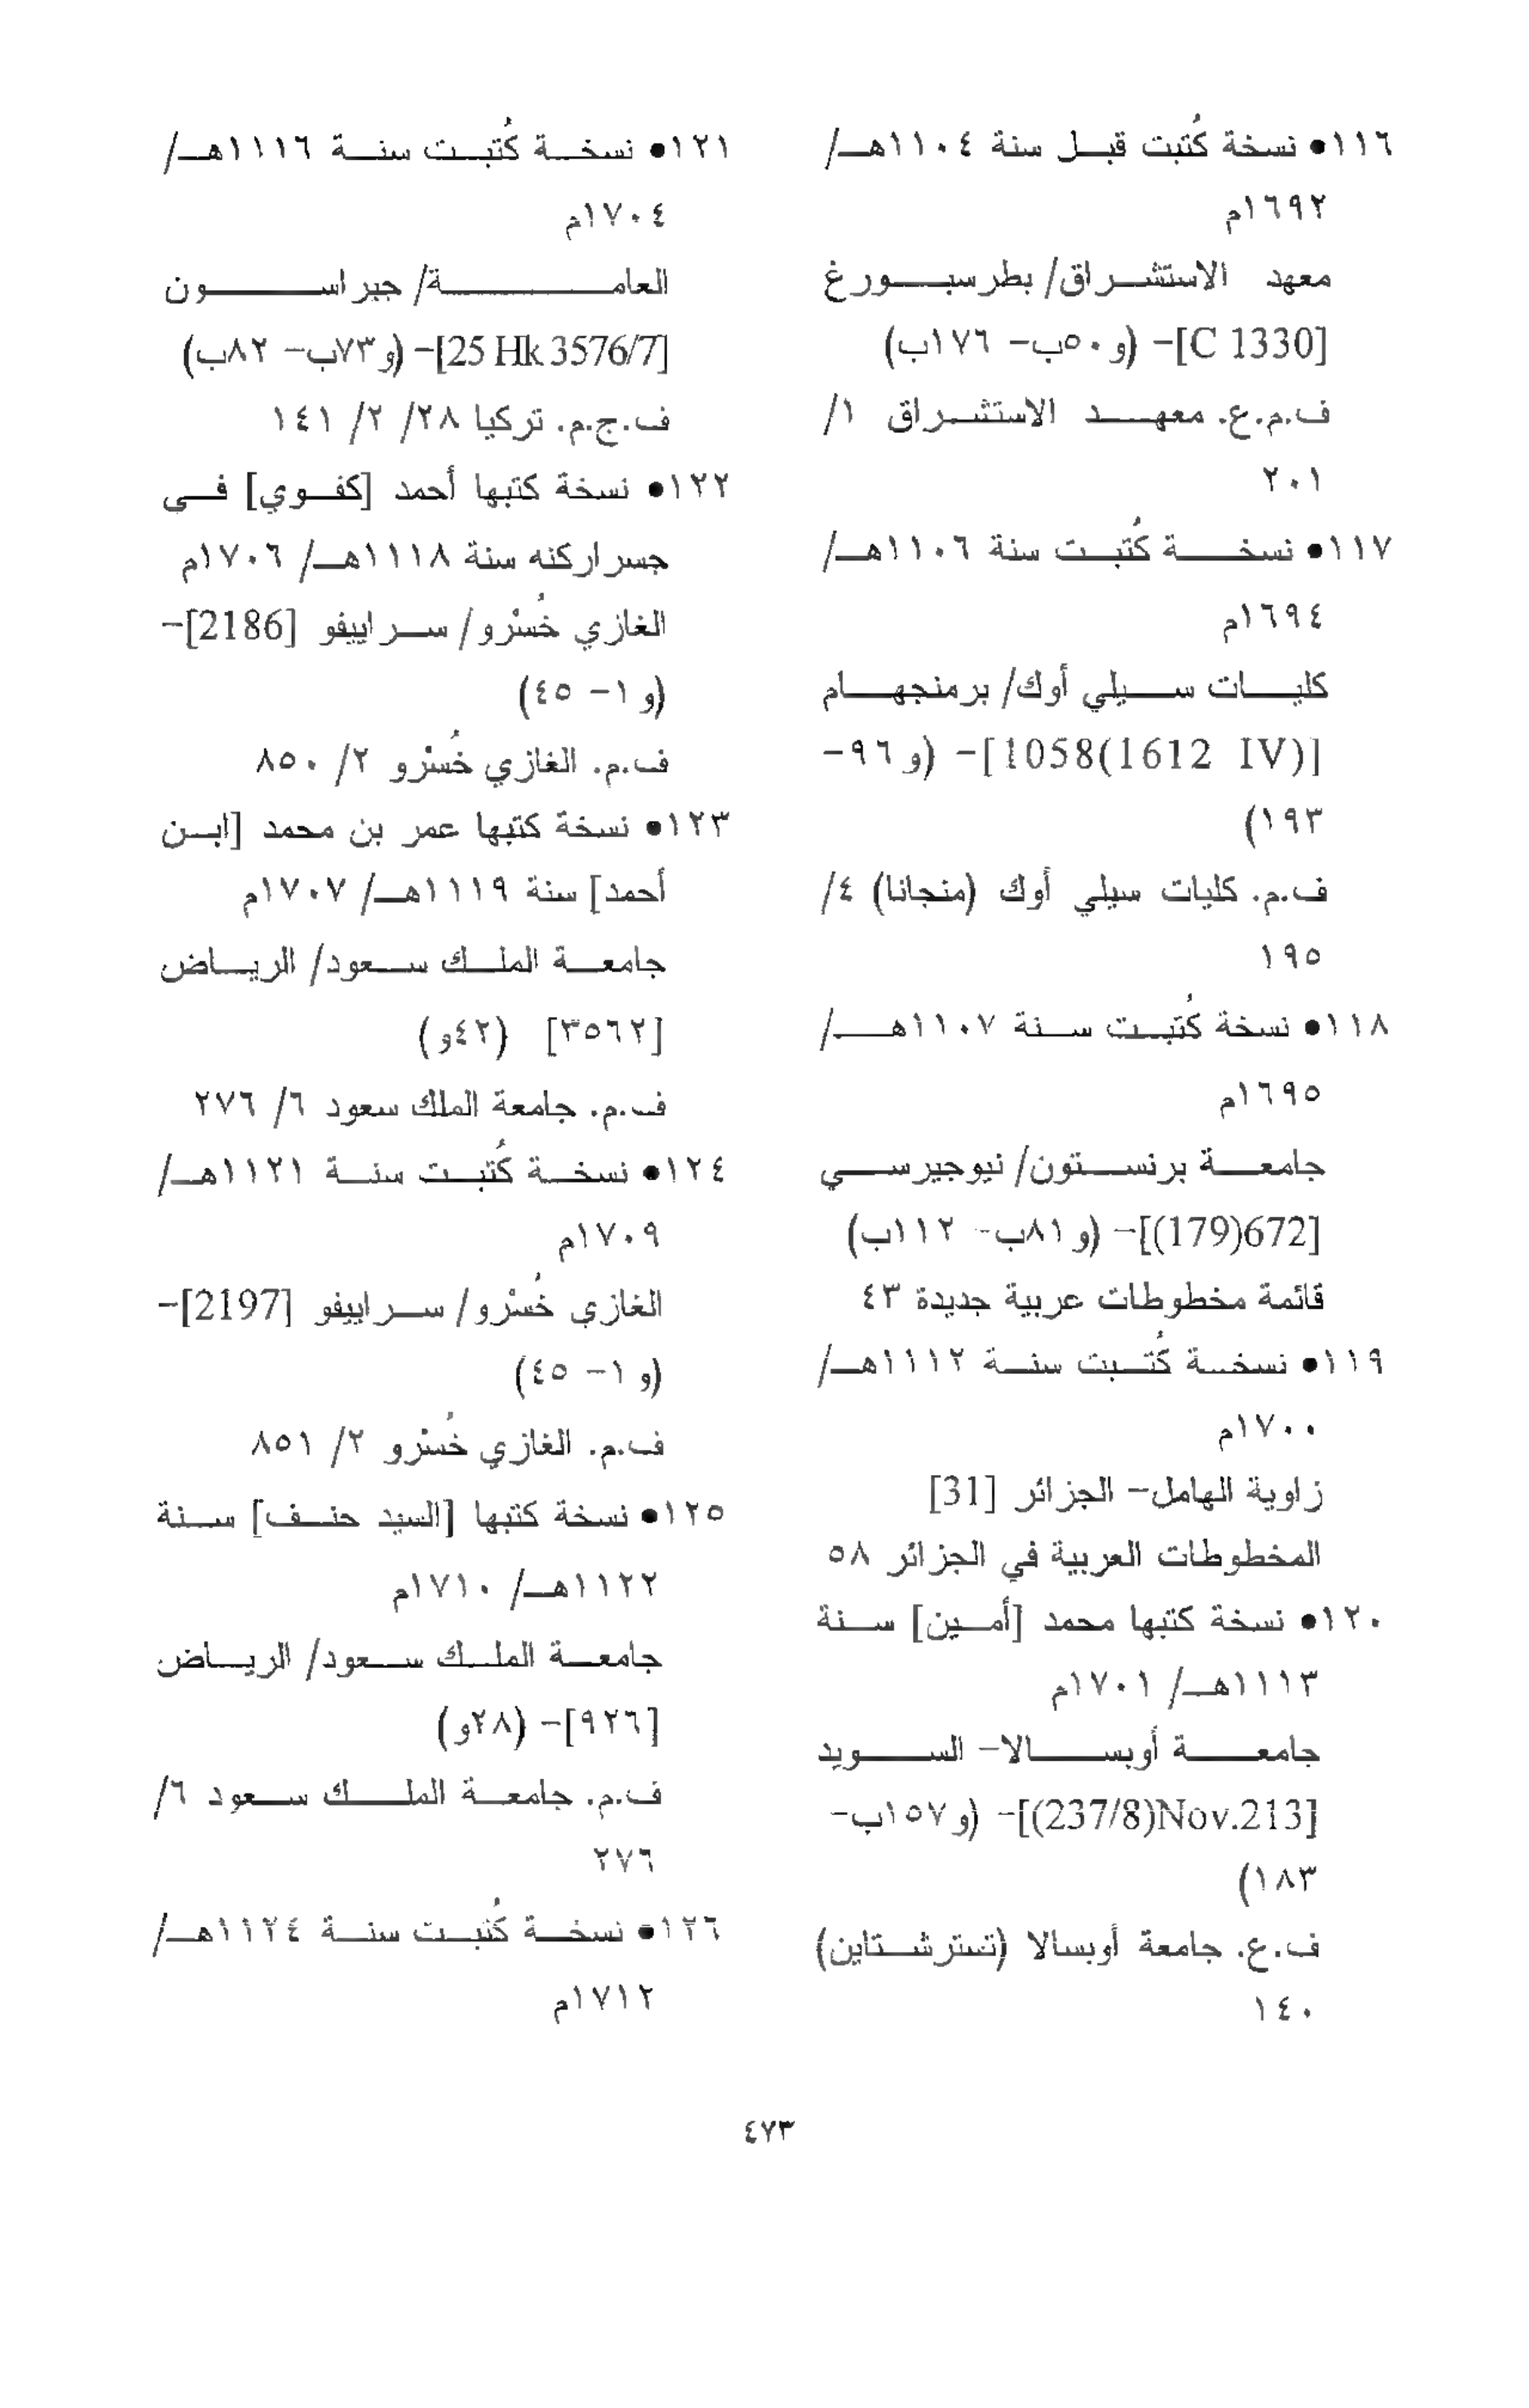 ١١٦● نسخة كُتبت قبل سنة ١١٠٤هـ/
١٦٩٢م
معهد الاستشراق/ بطرسبورغ
[C 1330]- (و٥٠ب- ١٧٦ب)
ف.م.ع. معهد الاستشراق ١/
٢٠١
١١٧● نسخة كُتبت سنة ١١٠٦هـ/
١٦٩٤م
كليات سيلي أوك/ برمنجهام
[1058(1612 IV)]- (و٩٦-
١٩٣)
ف.م. كليات سيلي أوك (منجانا) ٤/
١٩٥
١١٨● نسخة كُتبت سنة ١١٠٧هـ/
١٦٩٥م
جامعة برنستون/ نيوجيرسي
[672(179)]- (و٨١ب- ١١٢ب)
قائمة مخطوطات عربية جديدة ٤٣
١١٩● نسخة كُتبت سنة ١١١٢هـ/
١٧٠٠م
زاوية الهامل- الجزائر [31]
المخطوطات العربية في الجزائر ٥٨
١٢٠● نسخة كتبها محمد [أمين] سنة
١١١٣هـ/ ١٧٠١م
جامعة أوبسالا- السويد
[Nov.213(237/8)]- (و١٥٧ب-
١٨٣)
ف.ع. جامعة أوبسالا (تسترشتاين)
١٤٠
١٢١● نسخة كُتبت سنة ١١١٦هـ/
١٧٠٤م
العامة/ جيراسون
[25 Hk 3576/7]- (و٧٣ب- ٨٢ب)
ف.ج.م. تركيا ٢٨/ ٢/ ١٤١
١٢٢● نسخة كتبها أحمد [كفوي] فى
جسراركنه سنة ١١١٨هـ/ ١٧٠٦م
الغازي خُسْرو/ سراييفو [2186]-
(و١- ٤٥)
ف.م. الغازي خُسْرو ٢/ ٨٥٠
١٢٣● نسخة كتبها عمر بن محمد [ابن
أحمد] سنة ١١١٩هـ/ ١٧٠٧م
جامعة الملك سعود/ الرياض
[٣٥٦٢] (٤٢و)
ف.م. جامعة الملك سعود ٦/ ٢٧٦
١٢٤● نسخة كُتبت سنة ١١٢١هـ/
١٧٠٩م
الغازي خُسْرو/ سراييفو [2197]-
(و١- ٤٥)
ف.م. الغازي خُسْرو ٢/ ٨٥١
١٢٥● نسخة كتبها [السيد حنف] سنة
١١٢٢هـ/ ١٧١٠م
جامعة الملك سعود/ الرياض
[٩٢٦]- (٢٨و)
ف.م. جامعة الملك سعود ٦/
٢٧٦
١٢٦● نسخة كُتبت سنة ١١٢٤هـ/
١٧١٢م
٤٧٣